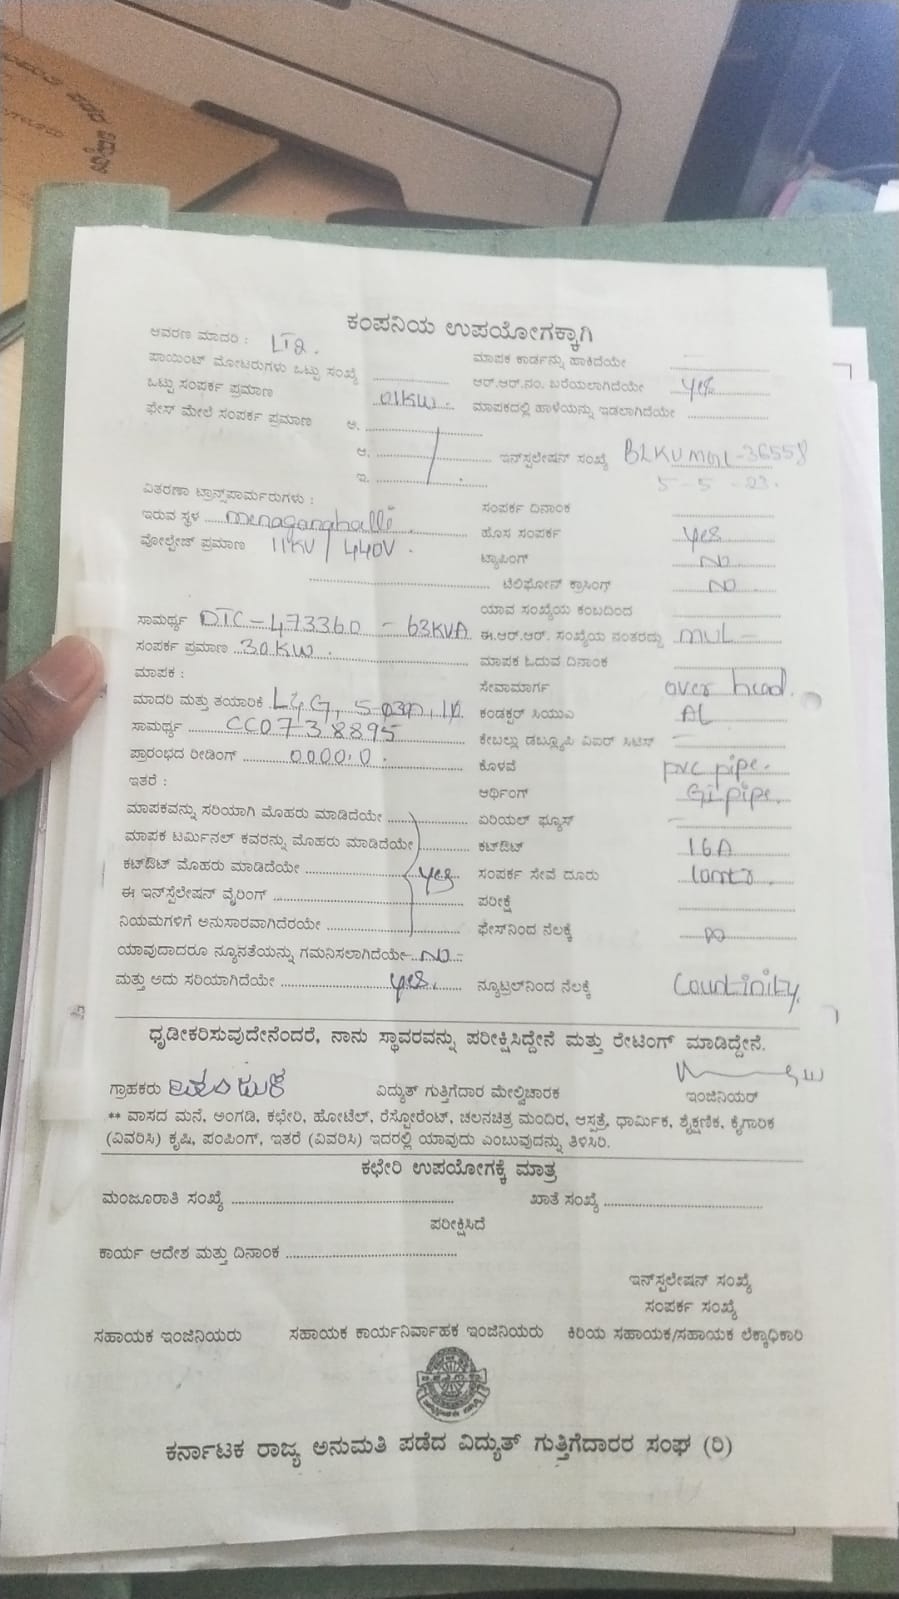 ಕಂಪನಿಯ ಉಪಯೋಗಕ್ಕಾಗಿ
ಆವರಣ ಮಾದರಿ : LT2.
ಮಾಪಕ ಕಾರ್ಡನ್ನು ಹಾಕಿದೆಯೇ
ಪಾಯಿಂಟ್ ಮೋಟರುಗಳು ಒಟ್ಟು ಸಂಖ್ಯೆ
ಆರ್.ಆರ್.ನಂ. ಬರೆಯಲಾಗಿದೆಯೇ yes
ಒಟ್ಟು ಸಂಪರ್ಕ ಪ್ರಮಾಣ 01KW.
ಮಾಪಕದಲ್ಲಿ ಹಾಳೆಯನ್ನು ಇಡಲಾಗಿದೆಯೇ
ಫೇಸ್ ಮೇಲೆ ಸಂಪರ್ಕ ಪ್ರಮಾಣ ಅ.
ಆ. ಇನ್‌ಸ್ಟಲೇಷನ್ ಸಂಖ್ಯೆ
ಇ. 5-5-23.
ವಿತರಣಾ ಟ್ರಾನ್ಸ್‌ಪಾರ್ಮರುಗಳು :
ಸಂಪರ್ಕ ದಿನಾಂಕ
ಇರುವ ಸ್ಥಳ
ಹೊಸ ಸಂಪರ್ಕ yes
ವೋಲ್ಟೇಜ್ ಪ್ರಮಾಣ 11KV / 440V.
ಟ್ಯಾಪಿಂಗ್ NO
ಟೆಲಿಫೋನ್ ಕ್ರಾಸಿಂಗ್ NO
ಯಾವ ಸಂಖ್ಯೆಯ ಕಂಬದಿಂದ
ಸಾಮರ್ಥ್ಯ DTC-473360 - 63KVA
ಈ.ಆರ್.ಆರ್. ಸಂಖ್ಯೆಯ ನಂತರದ್ದು MUL-
ಸಂಪರ್ಕ ಪ್ರಮಾಣ 30KW.
ಮಾಪಕ ಓದುವ ದಿನಾಂಕ
ಮಾಪಕ :
ಸೇವಾಮಾರ್ಗ over head.
ಮಾದರಿ ಮತ್ತು ತಯಾರಿಕೆ L&G,
ಕಂಡಕ್ಟರ್ ಸಿಯುಎ AL
ಸಾಮರ್ಥ್ಯ CC0738895
ಕೇಬಲ್ಲು ಡಬ್ಲ್ಯೂಪಿ
ಪ್ರಾರಂಭದ ರೀಡಿಂಗ್ 0000.0.
ಕೊಳವೆ pvc pipe.
ಇತರೆ :
ಆರ್ಥಿಂಗ್ Gi pipe.
ಮಾಪಕವನ್ನು ಸರಿಯಾಗಿ ಮೊಹರು ಮಾಡಿದೆಯೇ
ಏರಿಯಲ್ ಫ್ಯೂಸ್
ಮಾಪಕ ಟರ್ಮಿನಲ್ ಕವರನ್ನು ಮೊಹರು ಮಾಡಿದೆಯೇ
ಕಟ್‌ಔಟ್ 16A
ಕಟ್‌ಔಟ್ ಮೊಹರು ಮಾಡಿದೆಯೇ yes
ಸಂಪರ್ಕ ಸೇವೆ ದೂರು
ಈ ಇನ್‌ಸ್ಟಲೇಷನ್ ವೈರಿಂಗ್
ಪರೀಕ್ಷೆ
ನಿಯಮಗಳಿಗೆ ಅನುಸಾರವಾಗಿದೆರಯೇ
ಫೇಸ್‌ನಿಂದ ನೆಲಕ್ಕೆ
ಯಾವುದಾದರೂ ನ್ಯೂನತೆಯನ್ನು ಗಮನಿಸಲಾಗಿದೆಯೇ NO
ಮತ್ತು ಅದು ಸರಿಯಾಗಿದೆಯೇ yes.
ನ್ಯೂಟ್ರಲ್‌ನಿಂದ ನೆಲಕ್ಕೆ Countinity.
ಧೃಡೀಕರಿಸುವುದೇನೆಂದರೆ, ನಾನು ಸ್ಥಾವರವನ್ನು ಪರೀಕ್ಷಿಸಿದ್ದೇನೆ ಮತ್ತು ರೇಟಿಂಗ್ ಮಾಡಿದ್ದೇನೆ.
ಗ್ರಾಹಕರು ವಿದ್ಯುತ್ ಗುತ್ತಿಗೆದಾರ ಮೇಲ್ವಿಚಾರಕ ಇಂಜಿನಿಯರ್
** ವಾಸದ ಮನೆ, ಅಂಗಡಿ, ಕಛೇರಿ, ಹೋಟೆಲ್, ರೆಸ್ಟೋರೆಂಟ್, ಚಲನಚಿತ್ರ ಮಂದಿರ, ಆಸ್ಪತ್ರೆ, ಧಾರ್ಮಿಕ, ಶೈಕ್ಷಣಿಕ, ಕೈಗಾರಿಕ
(ವಿವರಿಸಿ) ಕೃಷಿ, ಪಂಪಿಂಗ್, ಇತರೆ (ವಿವರಿಸಿ) ಇದರಲ್ಲಿ ಯಾವುದು ಎಂಬುವುದನ್ನು ತಿಳಿಸಿರಿ.
ಕಛೇರಿ ಉಪಯೋಗಕ್ಕೆ ಮಾತ್ರ
ಮಂಜೂರಾತಿ ಸಂಖ್ಯೆ ಖಾತೆ ಸಂಖ್ಯೆ
ಪರೀಕ್ಷಿಸಿದೆ
ಕಾರ್ಯ ಆದೇಶ ಮತ್ತು ದಿನಾಂಕ
ಇನ್‌ಸ್ಟಲೇಷನ್ ಸಂಖ್ಯೆ
ಸಂಪರ್ಕ ಸಂಖ್ಯೆ
ಸಹಾಯಕ ಇಂಜಿನಿಯರು ಸಹಾಯಕ ಕಾರ್ಯನಿರ್ವಾಹಕ ಇಂಜಿನಿಯರು ಕಿರಿಯ ಸಹಾಯಕ/ಸಹಾಯಕ ಲೆಕ್ಕಾಧಿಕಾರಿ
ಕರ್ನಾಟಕ ರಾಜ್ಯ ಅನುಮತಿ ಪಡೆದ ವಿದ್ಯುತ್ ಗುತ್ತಿಗೆದಾರರ ಸಂಘ (ರಿ)